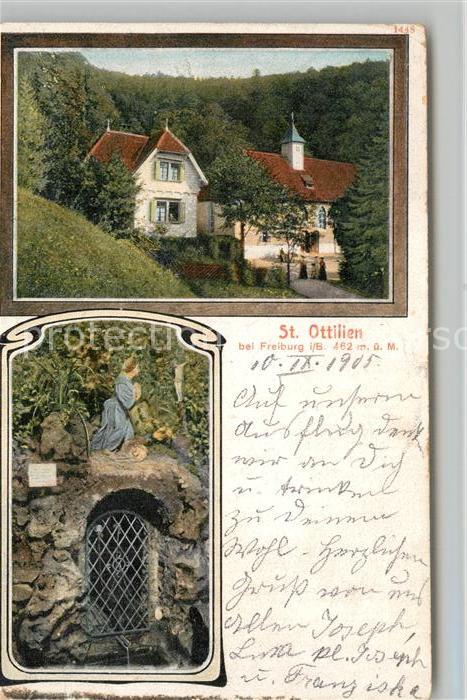 1448
St. Ottilien
bei Freiburg i/B. 462 m. ü. M.
10. IX. 1905.
Auf unserem
Ausflug denk
wir an Dich
u. trinken
zu Deinem
Wohl - Herzlichen
Gruß von uns
allen Joseph,
pl. Joseph
u. Franziska